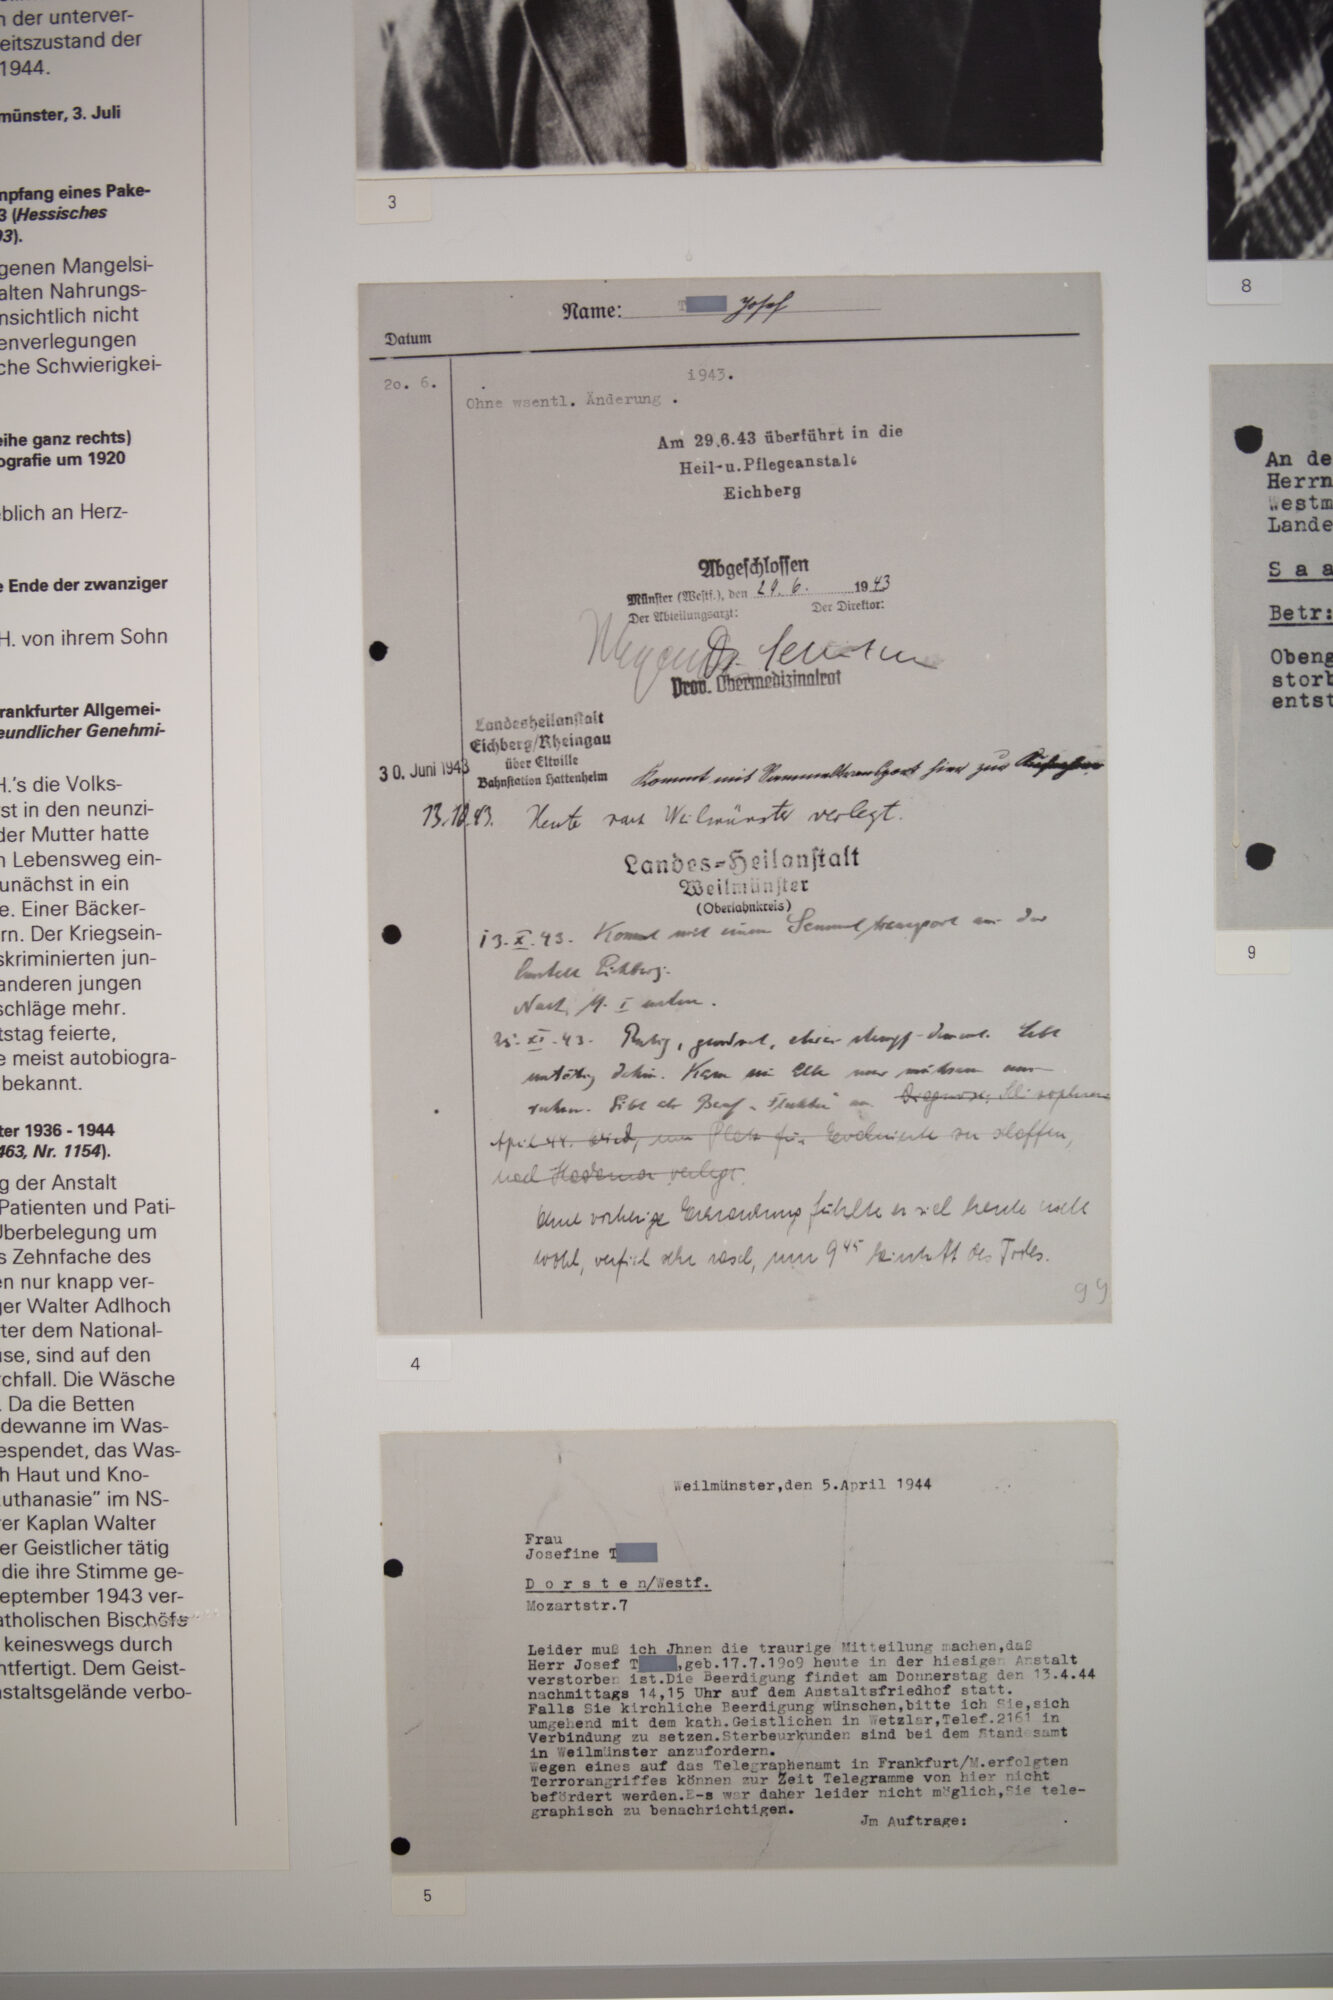 n der unterver-
eitszustand der
1944.
münster, 3. Juli
mpfang eines Pake-
3 (Hessisches
93).
genen Mangelsi-
alten Nahrungs-
nsichtlich nicht
enverlegungen
che Schwierigkei-
eihe ganz rechts)
ografie um 1920
eblich an Herz-
e Ende der zwanziger
H. von ihrem Sohn
rankfurter Allgemei-
eundlicher Genehmi-
H.'s die Volks-
rst in den neunzi-
der Mutter hatte
n Lebensweg ein-
unächst in ein
e. Einer Bäcker-
rn. Der Kriegsein-
skriminierten jun-
anderen jungen
schläge mehr.
tstag feierte,
e meist autobiogra-
bekannt.
ter 1936 - 1944
463, Nr. 1154).
g der Anstalt
Patienten und Pati-
Überbelegung um
s Zehnfache des
en nur knapp ver-
ger Walter Adlhoch
ter dem National-
use, sind auf den
rchfall. Die Wäsche
. Da die Betten
dewanne im Was-
espendet, das Was-
h Haut und Kno-
Euthanasie" im NS-
rer Kaplan Walter
er Geistlicher tätig
die ihre Stimme ge-
eptember 1943 ver-
atholischen Bischöfe
keineswegs durch
ntfertigt. Dem Geist-
nstaltsgelände verbo-
3
Name: T Josef
Datum
20. 6. 1943.
Ohne wsentl. Änderung .
Am 29.6.43 überführt in die
Heil-u.Pflegeanstalt
Eichberg
Abgeschlossen
Münster (Westf.), den 29. 6. 1943
Der Abteilungsarzt: Der Direktor:
Dr.
Prov. Obermedizinalrat
Landesheilanstalt
Eichberg/Rheingau
über Eltville
Bahnstation Hattenheim
30. Juni 1943 Kommt mit Sammeltransport hier zur Aufnahme
13.10.43. Heute nach Weilmünster verlegt.
Landes-Heilanstalt
Weilmünster
(Oberlahnkreis)
13. X. 43. Kommt mit einem Sammeltransport aus der
Anstalt Eichberg.
Nach M. I unten.
25. XI. 43. Ruhig, geordnet, etwas stumpf-dement. Lebt
untätig dahin.
Gibt als Beruf an Diagnose: Schizophrenie
April 44. wird, um Platz für Evakuierte zu schaffen,
nach Hadamar verlegt.
Ohne vorherige Erkrankung fühlte er sich heute nicht
wohl, verfiel sehr rasch, um 9 45 Eintritt des Todes.
99
4
Weilmünster,den 5.April 1944
Frau
Josefine T
D o r s t e n/Westf.
Mozartstr.7
Leider muß ich Jhnen die traurige Mitteilung machen,daß
Herr Josef T ,geb.17.7.1909 heute in der hiesigen Anstalt
verstorben ist.Die Beerdigung findet am Donnerstag den 13.4.44
nachmittags 14,15 Uhr auf dem Anstaltsfriedhof statt.
Falls Sie kirchliche Beerdigung wünschen,bitte ich Sie,sich
umgehend mit dem kath.Geistlichen in Wetzlar,Telef.2161 in
Verbindung zu setzen.Sterbeurkunden sind bei dem Standesamt
in Weilmünster anzufordern.
Wegen eines auf das Telegraphenamt in Frankfurt/M.erfolgten
Terrorangriffes können zur Zeit Telegramme von hier nicht
befördert werden.E-s war daher leider nicht möglich,Sie tele-
graphisch zu benachrichtigen.
Jm Auftrage:
5
8
An de
Herrn
Westm
Lande
S a a
Betr:
Obeng
storb
entst
9